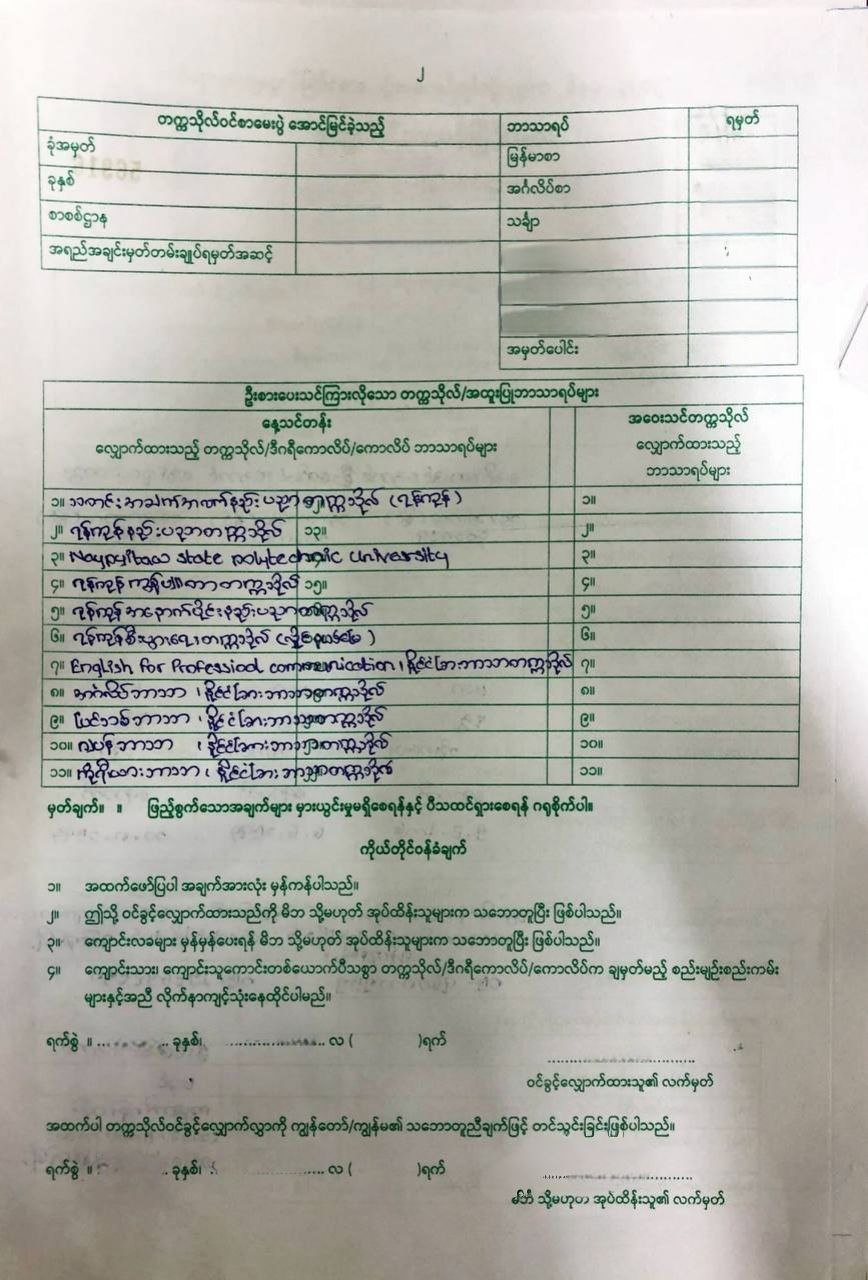 ၂
တက္ကသိုလ်ဝင်စာမေးပွဲ အောင်မြင်ခဲ့သည့် ဘာသာရပ် ရမှတ်
ခုံအမှတ် မြန်မာစာ
ခုနှစ် အင်္ဂလိပ်စာ
စာစစ်ဌာန သင်္ချာ
အရည်အချင်းမှတ်တမ်းချုပ်ရမှတ်အဆင့်
အမှတ်ပေါင်း
ဦးစားပေးသင်ကြားလိုသော တက္ကသိုလ်/အထူးပြုဘာသာရပ်များ
နေ့သင်တန်း
လျှောက်ထားသည့် တက္ကသိုလ်/ဒီဂရီကောလိပ်/ကောလိပ် ဘာသာရပ်များ
အဝေးသင်တက္ကသိုလ်
လျှောက်ထားသည့်
ဘာသာရပ်များ
၁။ သတင်းအချက်အလက်နည်းပညာတက္ကသိုလ် (ရန်ကုန်) ၁။
၂။ ရန်ကုန်နည်းပညာတက္ကသိုလ် ၁၃။ ၂။
၃။ Naypyitaw state polytechnic University ၃။
၄။ ရန်ကုန်ကွန်ပျူတာတက္ကသိုလ် ၁၅။ ၄။
၅။ ရန်ကုန်အနောက်ပိုင်းနည်းပညာတက္ကသိုလ် ၅။
၆။ ရန်ကုန်စီးပွားရေးတက္ကသိုလ် ၆။
၇။ English for Professiod communication၊ နိုင်ငံခြားဘာသာတက္ကသိုလ် ၇။
၈။ အင်္ဂလိပ်ဘာသာ ၊ နိုင်ငံခြားဘာသာတက္ကသိုလ် ၈။
၉။ ပြင်သစ်ဘာသာ ၊ နိုင်ငံခြားဘာသာတက္ကသိုလ် ၉။
၁၀။ ဂျပန်ဘာသာ ၊ နိုင်ငံခြားဘာသာတက္ကသိုလ် ၁၀။
၁၁။ ကိုရီးယားဘာသာ ၊ နိုင်ငံခြားဘာသာတက္ကသိုလ် ၁၁။
မှတ်ချက်။ ။ ဖြည့်စွက်သောအချက်များ မှားယွင်းမှုမရှိစေရန်နှင့် ပီသထင်ရှားစေရန် ဂရုစိုက်ပါ။
ကိုယ်တိုင်ဝန်ခံချက်
၁။ အထက်ဖော်ပြပါ အချက်အားလုံး မှန်ကန်ပါသည်။
၂။ ဤသို့ ဝင်ခွင့်လျှောက်ထားသည်ကို မိဘ သို့မဟုတ် အုပ်ထိန်းသူများက သဘောတူပြီး ဖြစ်ပါသည်။
၃။ ကျောင်းလခများ မှန်မှန်ပေးရန် မိဘ သို့မဟုတ် အုပ်ထိန်းသူများက သဘောတူပြီး ဖြစ်ပါသည်။
၄။ ကျောင်းသား၊ ကျောင်းသူကောင်းတစ်ယောက်ပီသစွာ တက္ကသိုလ်/ဒီဂရီကောလိပ်/ကောလိပ်က ချမှတ်မည့် စည်းမျဉ်းစည်းကမ်း
များနှင့်အညီ လိုက်နာကျင့်သုံးနေထိုင်ပါမည်။
ရက်စွဲ ။ ခုနှစ်၊ လ ( )ရက်
ဝင်ခွင့်လျှောက်ထားသူ၏ လက်မှတ်
အထက်ပါ တက္ကသိုလ်ဝင်ခွင့်လျှောက်လွှာကို ကျွန်တော်/ကျွန်မ၏ သဘောတူညီချက်ဖြင့် တင်သွင်းခြင်းဖြစ်ပါသည်။
ရက်စွဲ ။ ခုနှစ်၊ လ ( )ရက်
မိဘ သို့မဟုတ် အုပ်ထိန်းသူ၏ လက်မှတ်